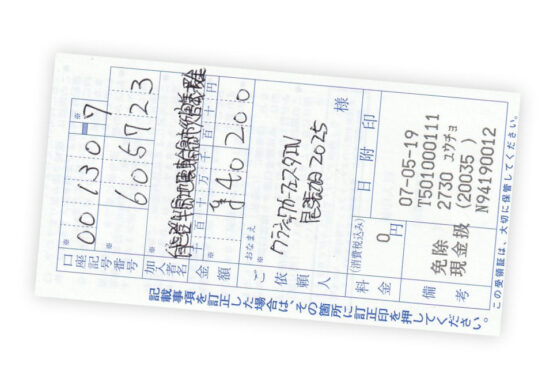 口座記号番号
00130-7
605723
加入者名
金額
千百十万千百十円
¥40200
ご依頼人
おなまえ
クラシックカーフェスタIN
2025
様
料金
(消費税込み)
0円
日附印
07-05-19
T501000111
2730 ユウチョ
(20035)
N94190012
備考
免除
現金扱
記載事項を訂正した場合は、その箇所に訂正印を押してください。
この受領証は、大切に保管してください。